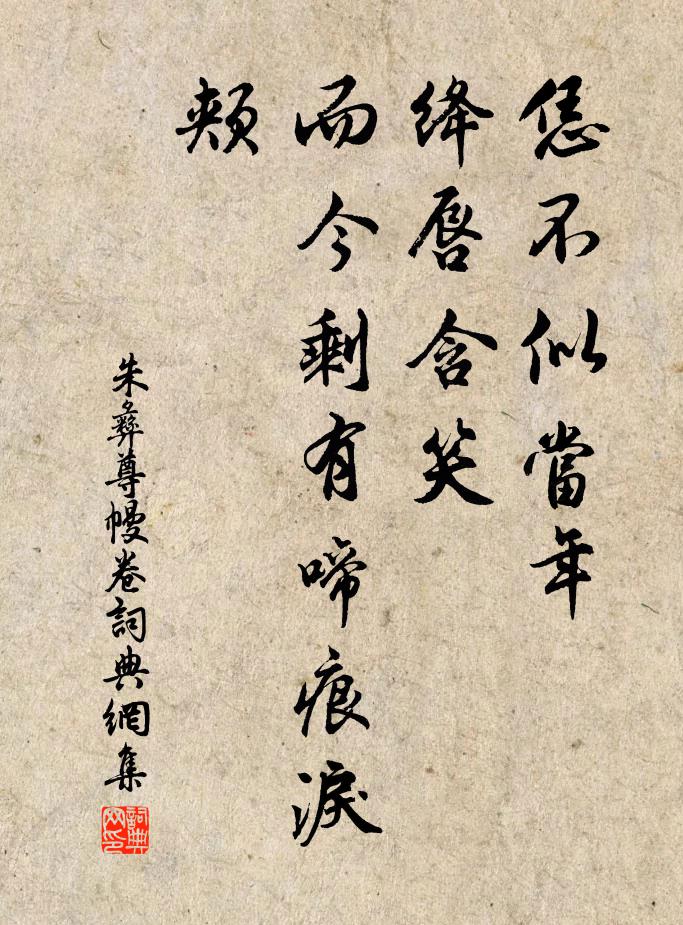 恁不似當年
絳唇含笑
而今剩有啼痕淚
頰
朱彝尊幔卷詞典網集
詞典網印